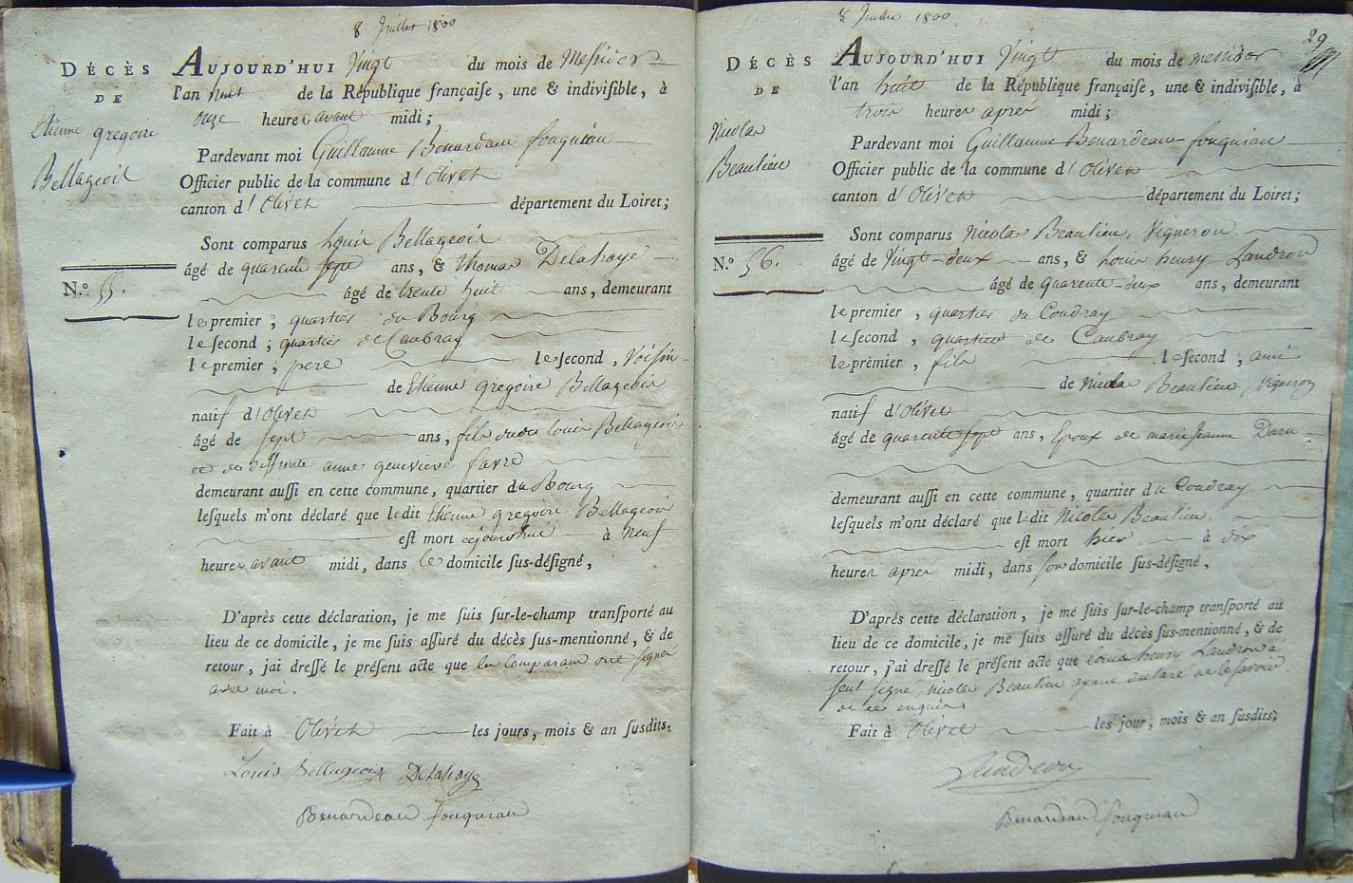 8 Juillet 1800
DÉCÈS
DE
Etienne gregoire
Bellageoit
N.° 55.
AUJOURD'HUI Vingt du mois de Messidor
l'an huit de la République françaiſe, une & indiviſible, à
onze heures avant midi;
Pardevant moi Guillaume Benardeau fouquiau
Officier public de la commune d'Olivet
canton d'Olivet département du Loiret;
Sont comparus Louis Bellageoir
âgé de quarente ſept ans, & thomas Delahaye
âgé de trente huit ans, demeurant
le premier, quartier du Bourg
le ſecond, quartier de Caubray
le premier, pere le ſecond, Voiſin
de Etienne gregoire Bellageoir
natif d'Olivet
âgé de ſept ans, fils dudit louis Bellageoir
et de deffunte anne genevieve favre
demeurant auſſi en cette commune, quartier du Bourg
leſquels m'ont déclaré que ledit Etienne gregoire Bellageoir
eſt mort cejourd'hui à neuf
heures avant midi, dans le domicile ſus-déſigné,
D'après cette déclaration, je me ſuis ſur-le-champ tranſporté au
lieu de ce domicile, je me ſuis aſſuré du décès sus-mentionné, & de
retour, jai dreſſé le préſent acte que les Comparans ont ſigné
avec moi.
Fait à Olivet les jours, mois & an ſusdits;
Louis Bellageoir Delahaye
Benardeau fouquiau
8 Juillet 1800.
29
DÉCÈS
DE
Nicolas
Beaulieu
N.° 56.
AUJOURD'HUI Vingt du mois de messidor
l'an huit de la République françaiſe, une & indiviſible, à
trois heures après midi;
Pardevant moi Guillaume Benardeau fouquiau
Officier public de la commune d'Olivet
canton d'Olivet département du Loiret;
Sont comparus Nicolas Beaulieu, Vigneron
âgé de Vingt-deux ans, & Louis henry Landron
âgé de quarente-deux ans, demeurant
le premier, quartier du Coudray
le ſecond, quartier de Caubray
le prèmier, fils le ſecond, ami
de Nicolas Beaulieu, Vigneron
natif d'Olivet
âgé de quarente ſept ans, Epoux de marie Jeanne Daru
demeurant auſſi en cette commune, quartier du Coudray
leſquels m'ont déclaré que ledit Nicolas Beaulieu
eſt mort hier à dix
heures apres midi, dans ſon domicile ſus-déſigné,
D'après cette déclaration, je me ſuis ſur-le-champ tranſporté au
lieu de ce domicile, je me ſuis aſſuré du décès ſus-mentionné, & de
retour, j'ai dreſſé le préſent acte que Louis henry Landron a
ſeul ſigné, Nicolas Beaulieu ayant déclaré ne le ſavoir
de ce enquis
Fait à Olivet les jour, mois & an ſusdits;
Landron
Benardeau fouquiau